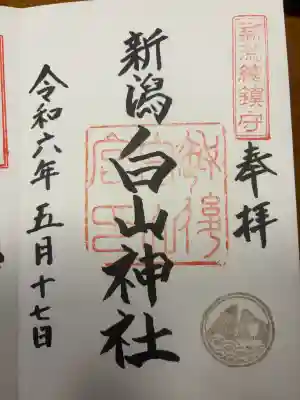 新潟總鎮守
奉拝
新潟白山神社
令和六年五月十七日